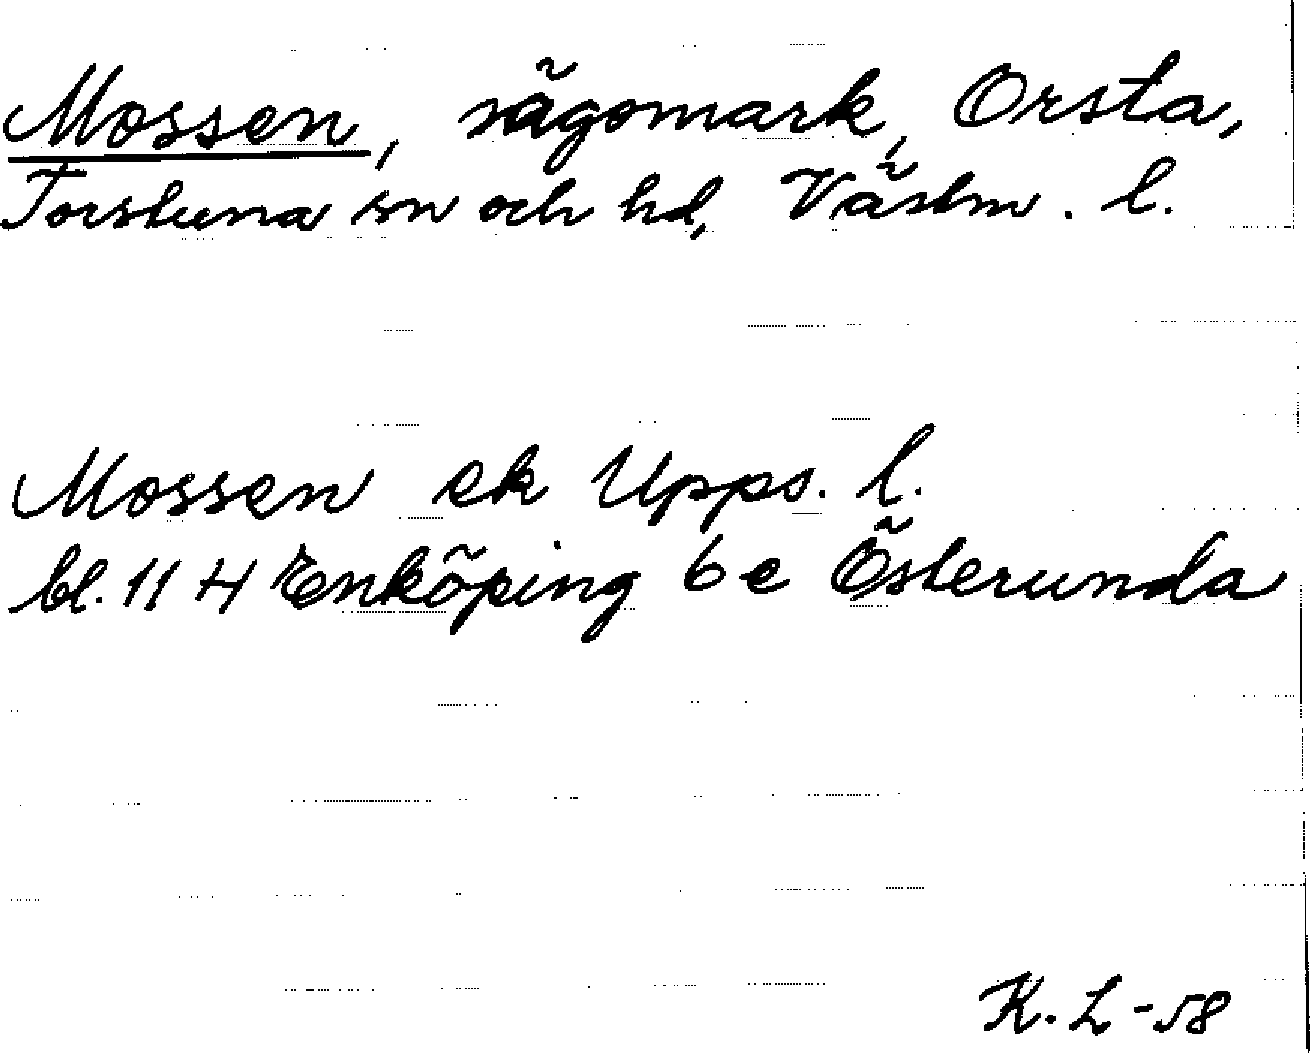 Mossen, sägomark, Orsta,
Torstuna sn och hd, Västm. l.
Mossen ek Upps. l.
bl. 11 H Enköping 6 e Österunda
K. L -58